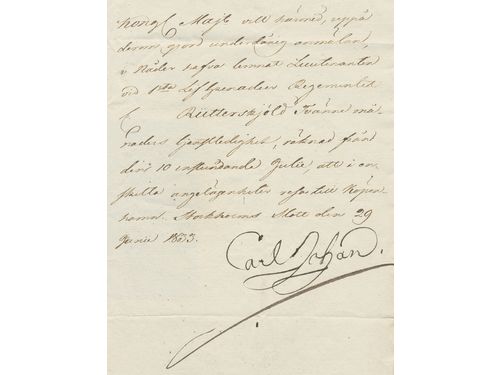 Kongl Maj:t vill härmed, uppå
derom gjord underdånig anmälan,
i Nåder hafva lemnat Lieutenanten
vid 1sta Lif Grenadier Regementet
f Rütterskjöld Tvänne må-
naders tjenstledighet, räknad från
den 10 instundande Julii, att i en-
skilta angelägenheter resa till Köpen-
hamn. Stockholms Slott den 29
Junii 1833.
Carl Johan.